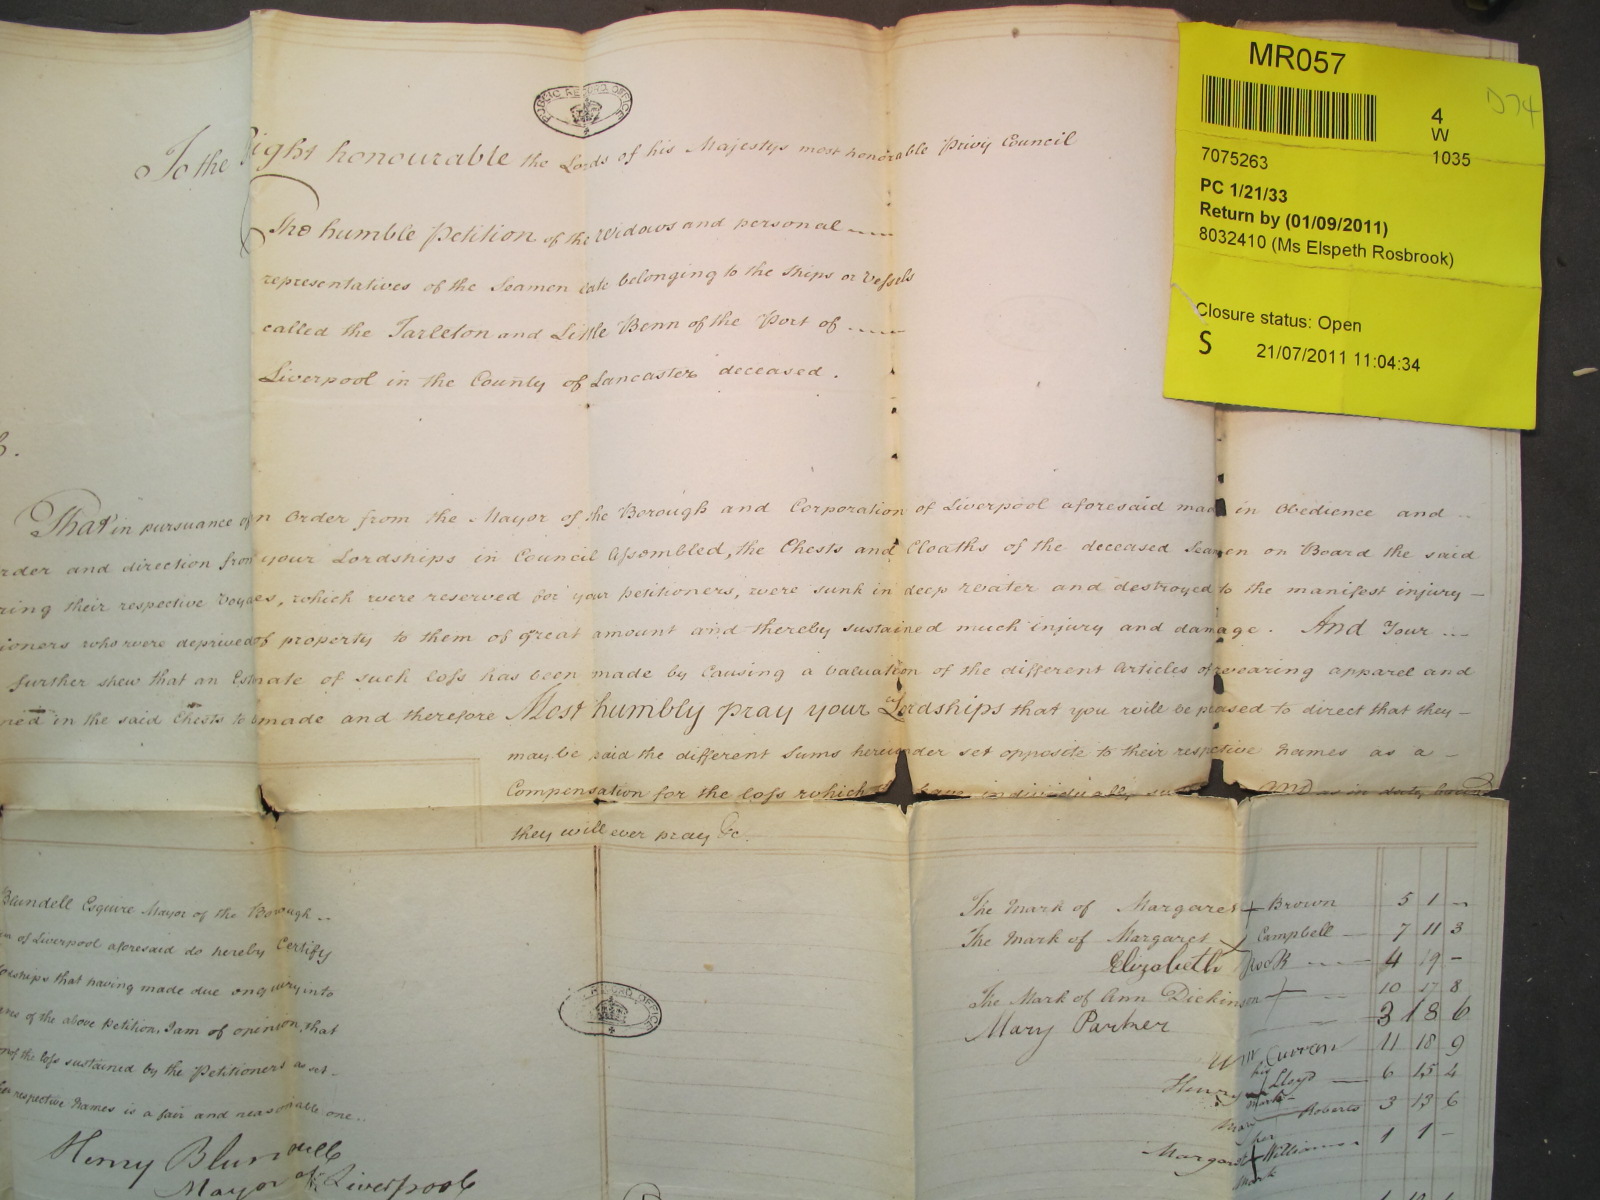 PUBLIC RECORD OFFICE
To the Right honourable the Lords of his Majestys most honorable Privy Council
The humble Petition of the Widows and personal
representatives of the Seamen late belonging to the Ships or Vessels
called the Tarleton and Little Benn of the Port of
Liverpool in the County of Lancaster deceased.
That in pursuance of an Order from the Mayor of the Borough and Corporation of Liverpool aforesaid made in Obedience and
rder and direction from your Lordships in Council Assembled, the Chests and Cloaths of the deceased Seamen on Board the said
ring their respective Voyages, which were reserved for your petitioners, were sunk in deep water and destroyed to the manifest injury
ioners who were deprived of property to them of great amount and thereby sustained much injury and damage. And Your
further shew that an Estimate of such loss has been made by Causing a Valuation of the different Articles of wearing apparel and
ned in the said Chests to be made and therefore Most humbly pray your Lordships that you will be pleased to direct that they
may be paid the different Sums hereunder set opposite to their respective Names as a
Compensation for the loss which they have individually And as in duty bound
they will ever pray &c.
Blundell Esquire Mayor of the Borough
n of Liverpool aforesaid do hereby Certify
ordships that having made due enquiry into
of the above Petition, I am of opinion, that
of the loss sustained by the Petitioners as set
respective Names is a fair and reasonable one
Henry Blundell
Mayor of Liverpool
PUBLIC RECORD OFFICE
The Mark of Margaret + Brown 5 1 -
The Mark of Margaret Campbell 7 11 3
Elizabeth Rock 4 19 -
The Mark of Ann Dickinson + 10 17 8
Mary Parker 3 18 6
Wm Curran 11 18 9
Henry his mark Lloyd 6 15 4
Roberts 3 13 6
Margaret her mark Williams 1 1 -
MR057
4
W
1035
D74
7075263
PC 1/21/33
Return by (01/09/2011)
8032410 (Ms Elspeth Rosbrook)
Closure status: Open
S 21/07/2011 11:04:34